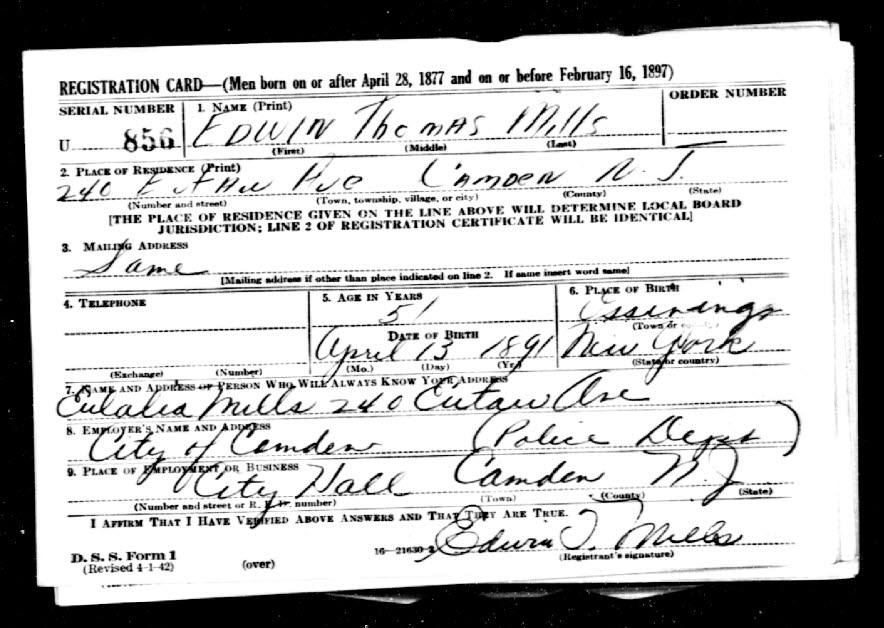 REGISTRATION CARD—(Men born on or after April 28, 1877 and on or before February 16, 1897)
SERIAL NUMBER 1. NAME (Print) ORDER NUMBER
U 856 EDWIN THOMAS Mills
(First) (Middle) (Last)
2. PLACE OF RESIDENCE (Print)
240 EUTAW AVE CAMDEN N. J.
(Number and street) (Town, township, village, or city) (County) (State)
[THE PLACE OF RESIDENCE GIVEN ON THE LINE ABOVE WILL DETERMINE LOCAL BOARD
JURISDICTION; LINE 2 OF REGISTRATION CERTIFICATE WILL BE IDENTICAL]
3. MAILING ADDRESS
Same
[Mailing address if other than place indicated on line 2. If same insert word same]
4. TELEPHONE 5. AGE IN YEARS 6. PLACE OF BIRTH
51 Ossinings
DATE OF BIRTH (Town or county)
April 13 1891 New York
(Exchange) (Number) (Mo.) (Day) (Yr.) (State or country)
7. NAME AND ADDRESS OF PERSON WHO WILL ALWAYS KNOW YOUR ADDRESS
Eulalia Mills 240 Eutaw Ave
8. EMPLOYER'S NAME AND ADDRESS
City of Camden (Police Dept)
9. PLACE OF EMPLOYMENT OR BUSINESS
City Hall Camden N J
(Number and street or R. F. D. number) (Town) (County) (State)
I AFFIRM THAT I HAVE VERIFIED ABOVE ANSWERS AND THAT THEY ARE TRUE.
Edwin T. Mills
D. S. S. Form 1 16—21630-2 (Registrant's signature)
(Revised 4-1-42) (over)